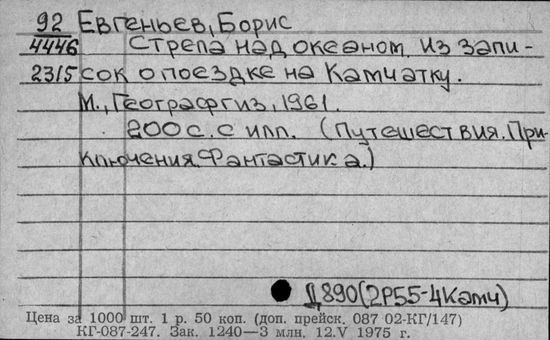 92 Евгеньев, Борис
4446 Стрела над океаном. Из запи-
2315 сок о поездке на Камчатку.
М., Географгиз, 1961.
200 с. с илл. (Путешествия. При-
ключения. Фантастика.)
Д890(2Р55-4Камч)
Цена за 1000 шт. 1 р. 50 коп. (доп. прейск. 087 02-КГ/147)
КГ-087-247. Зак. 1240—3 млн. 12.V 1975 г.